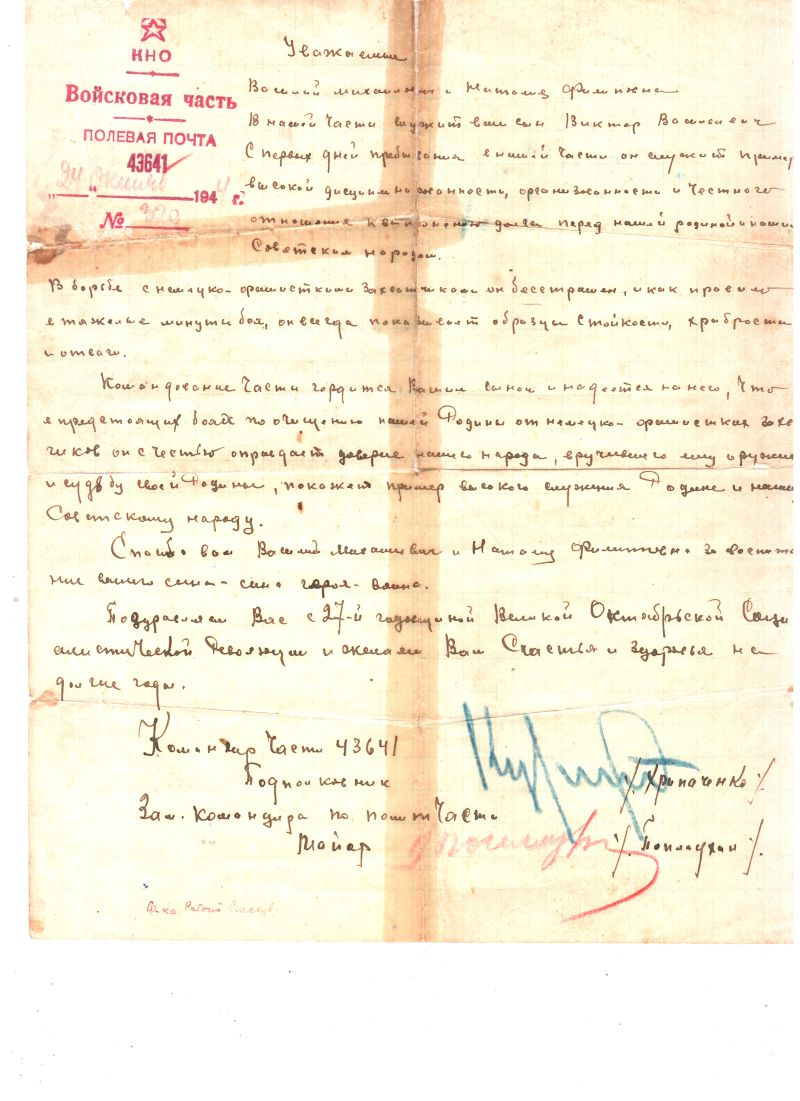 КНО
Войсковая часть
ПОЛЕВАЯ ПОЧТА
43641
"24" 194 4 г.
№ 320
Уважаемые
Василий Михайлович и Наталия
В нашей части служит ваш сын Виктор Васильевич
С первых дней пребывания в нашей части он служит пример
высокой дисциплинированности, организованности и честного
отношение к выполнению долга перед нашей родиной и наши
Советским народом.
В борьбе с немецко-фашисткими захватчиками он бесстрашен, и как правило
в тяжелые минуты боя, он всегда показывает образцы стойкости, храбрости
и отваги.
Командование Части гордится Вашим сыном и надеется на него, что
в предстоящих боях по очищению нашей Родины от немецко-фашистких захв
чиков он с честью оправдает доверие нашего народа, вручившего ему оружие
и судьбу своей Родины, покажет пример высокого служения Родине и наше
Советскому народу.
Спасибо вам Василий Михайлович и Наталия Филиповна за воспита
ние вашего сына - сына героя-воина.
Поздравляем Вас с 27-й годовщиной Великой Октябрьской Соци
алистической Революции и желаем Вам Счастья и здоровья на
долгие годы.
Командир Части 43641
Подполковник /Хрипаченко/.
Зам. Командира по политчасти
Майор